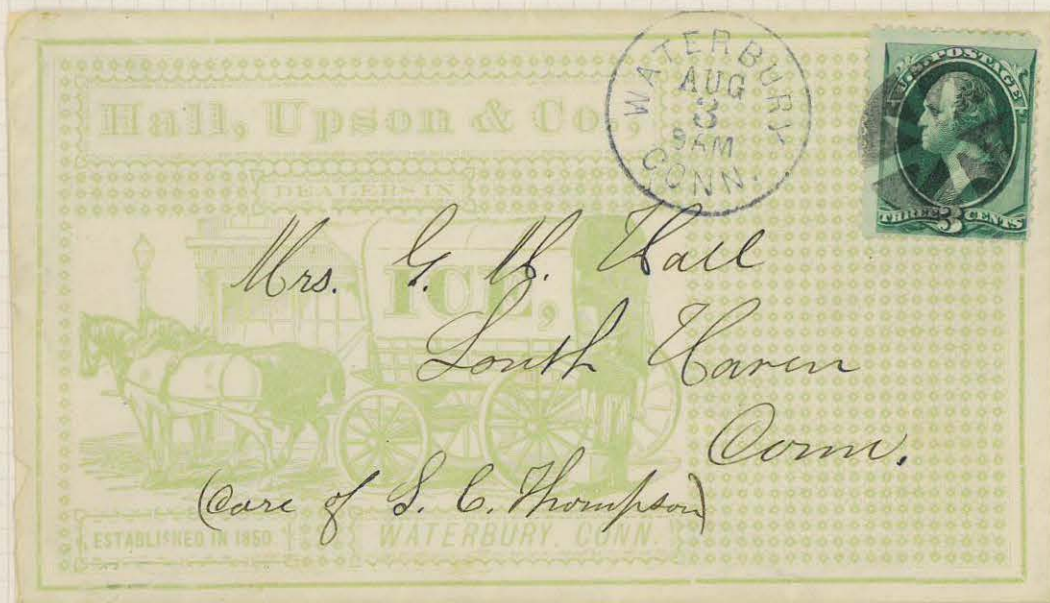 Hall, Upson & Co.,
DEALERS IN
ICE,
ESTABLISHED IN 1850
WATERBURY, CONN.
WATERBURY
AUG
3
9AM
CONN.
U.S. POSTAGE
THREE 3 CENTS
Mrs. G. H. Hall
South Haven
Conn.
(Care of S. C. Thompson)